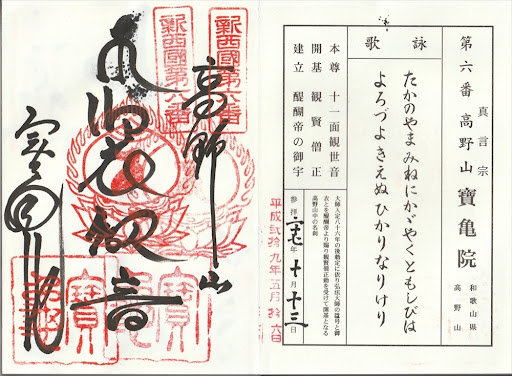 真言宗
第六番 高野山 寶亀院
和歌山県
高野山
詠歌
たかのやま みねにかゞやくともしびは
よろづよきえぬ ひかりなりけり
本尊 十一面観世音
開基 観賢僧正
建立 醍醐帝の御宇
大師入定八十六年の後勅定に依り弘法大師の諡号と御
衣とを醍醐帝より賜り観賢僧正勅を受けて開基となる
高野山中の名刹
参拝 二七年十月十三日
平成弐拾九年五月拾六日
新西國第六番
高野山
新西國第六番
衣観音
寶亀院
寶